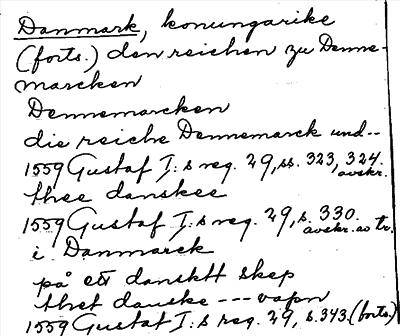 Danmark, konungarike
(forts.) den reichen zu Denne-
marcken
Dennemarcken
die reiche Dennemarck und--
1559 Gustaf I:s reg. 29, ss. 323, 324.
avskr.
thee danskee
1559 Gustaf I:s reg. 29, s. 330.
avskr. av tr.
i Danmarck
på ett dansktt skep
thet danske --- vapn
1559 Gustaf I:s reg. 29, s. 343. (forts.)